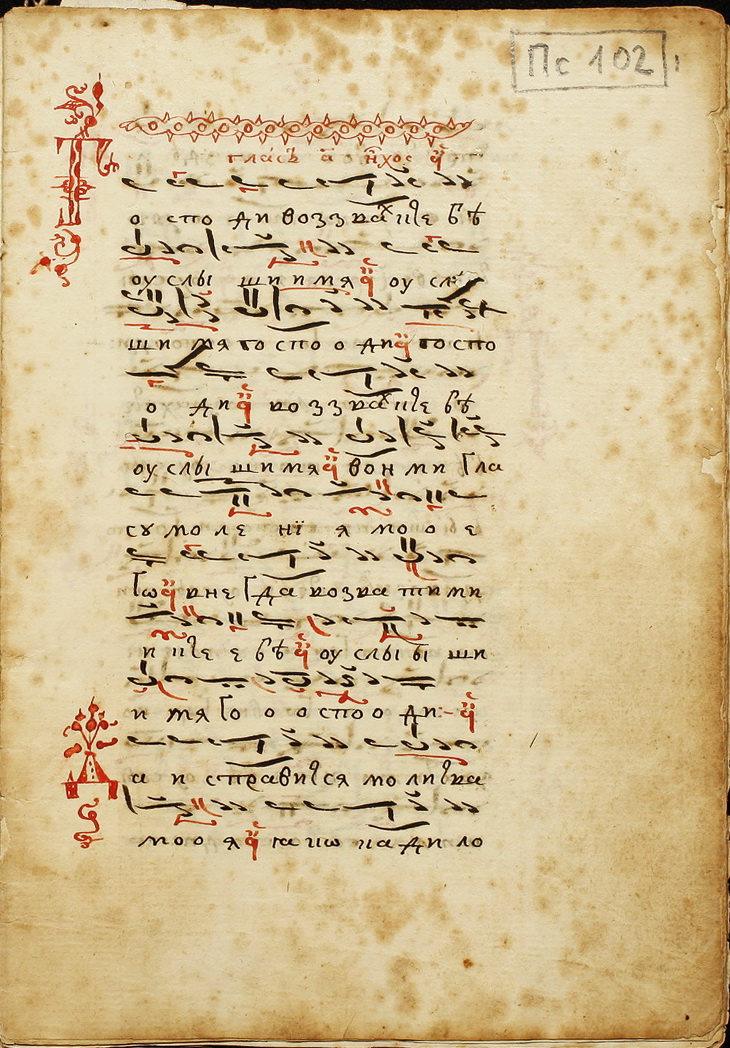 Пс 102
гласъ а҃ ихос
Г о спо ди воззва хъ къ тебѣ
оу слы ши и мя оу слы
ши мя го спо о ди го спо
о ди воззвахъ къ тебѣ
оу слы ши мя вон ми гла
су мо ле нї я мо о е
го вне гда возва ти ми
и те е бѣ оу слы ы ши
и мя го о о спо о ди
Д а и справится молитва
мо о я я ко ка ди ло